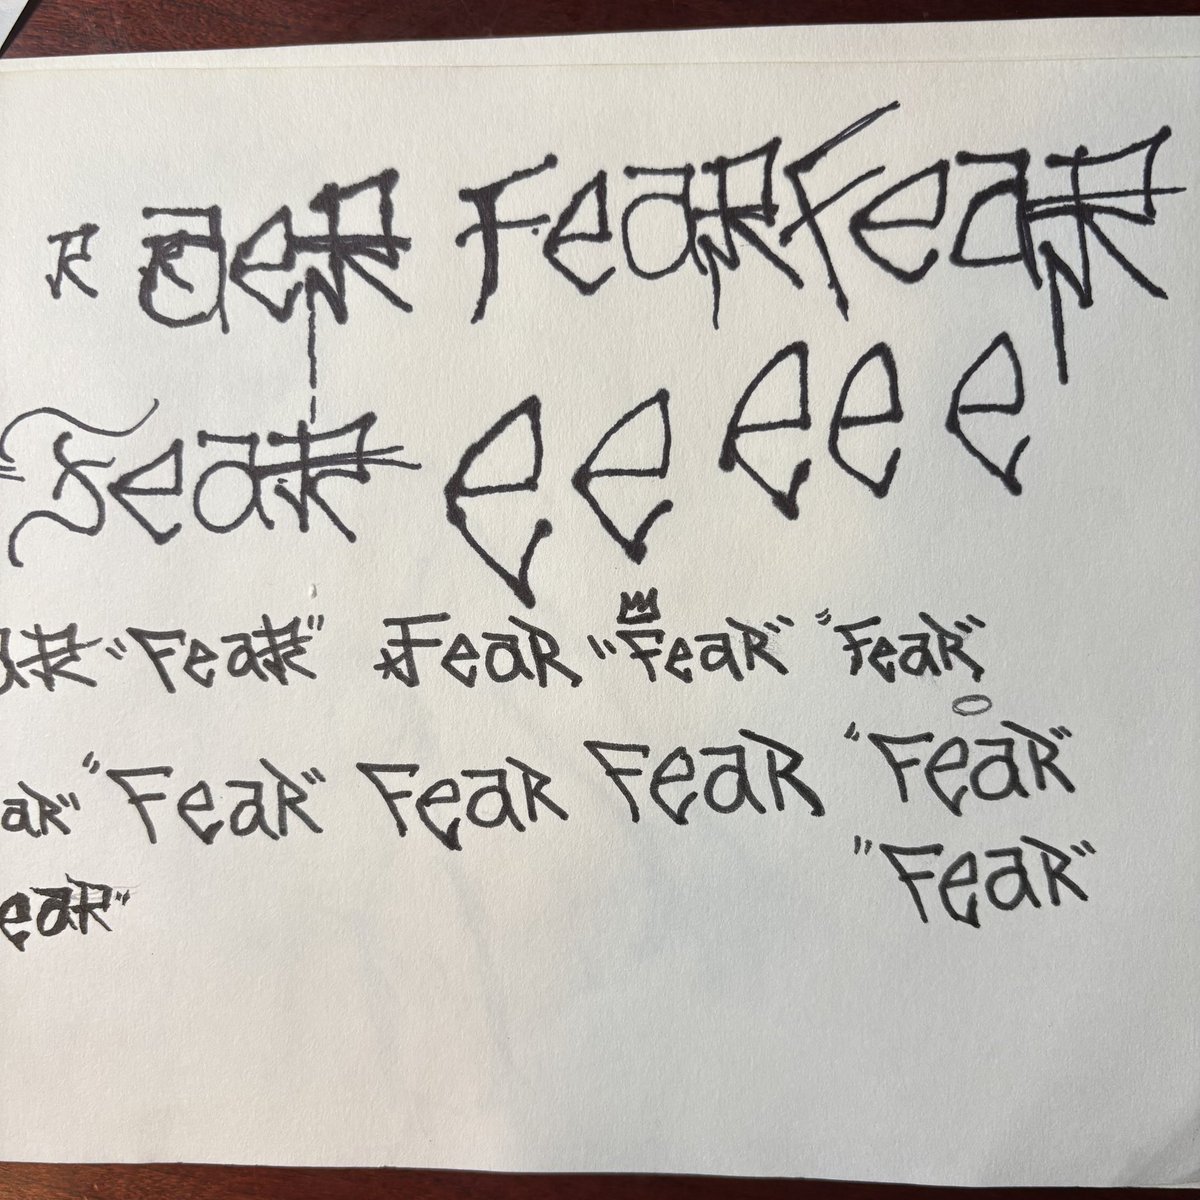 R aeR Fear Fear
"Fear e e e e e
aR "FeaR" FeaR "FeaR" "FeaR"
aR" "FeaR" FeaR FeaR "FeaR"
eaR" "FeaR"